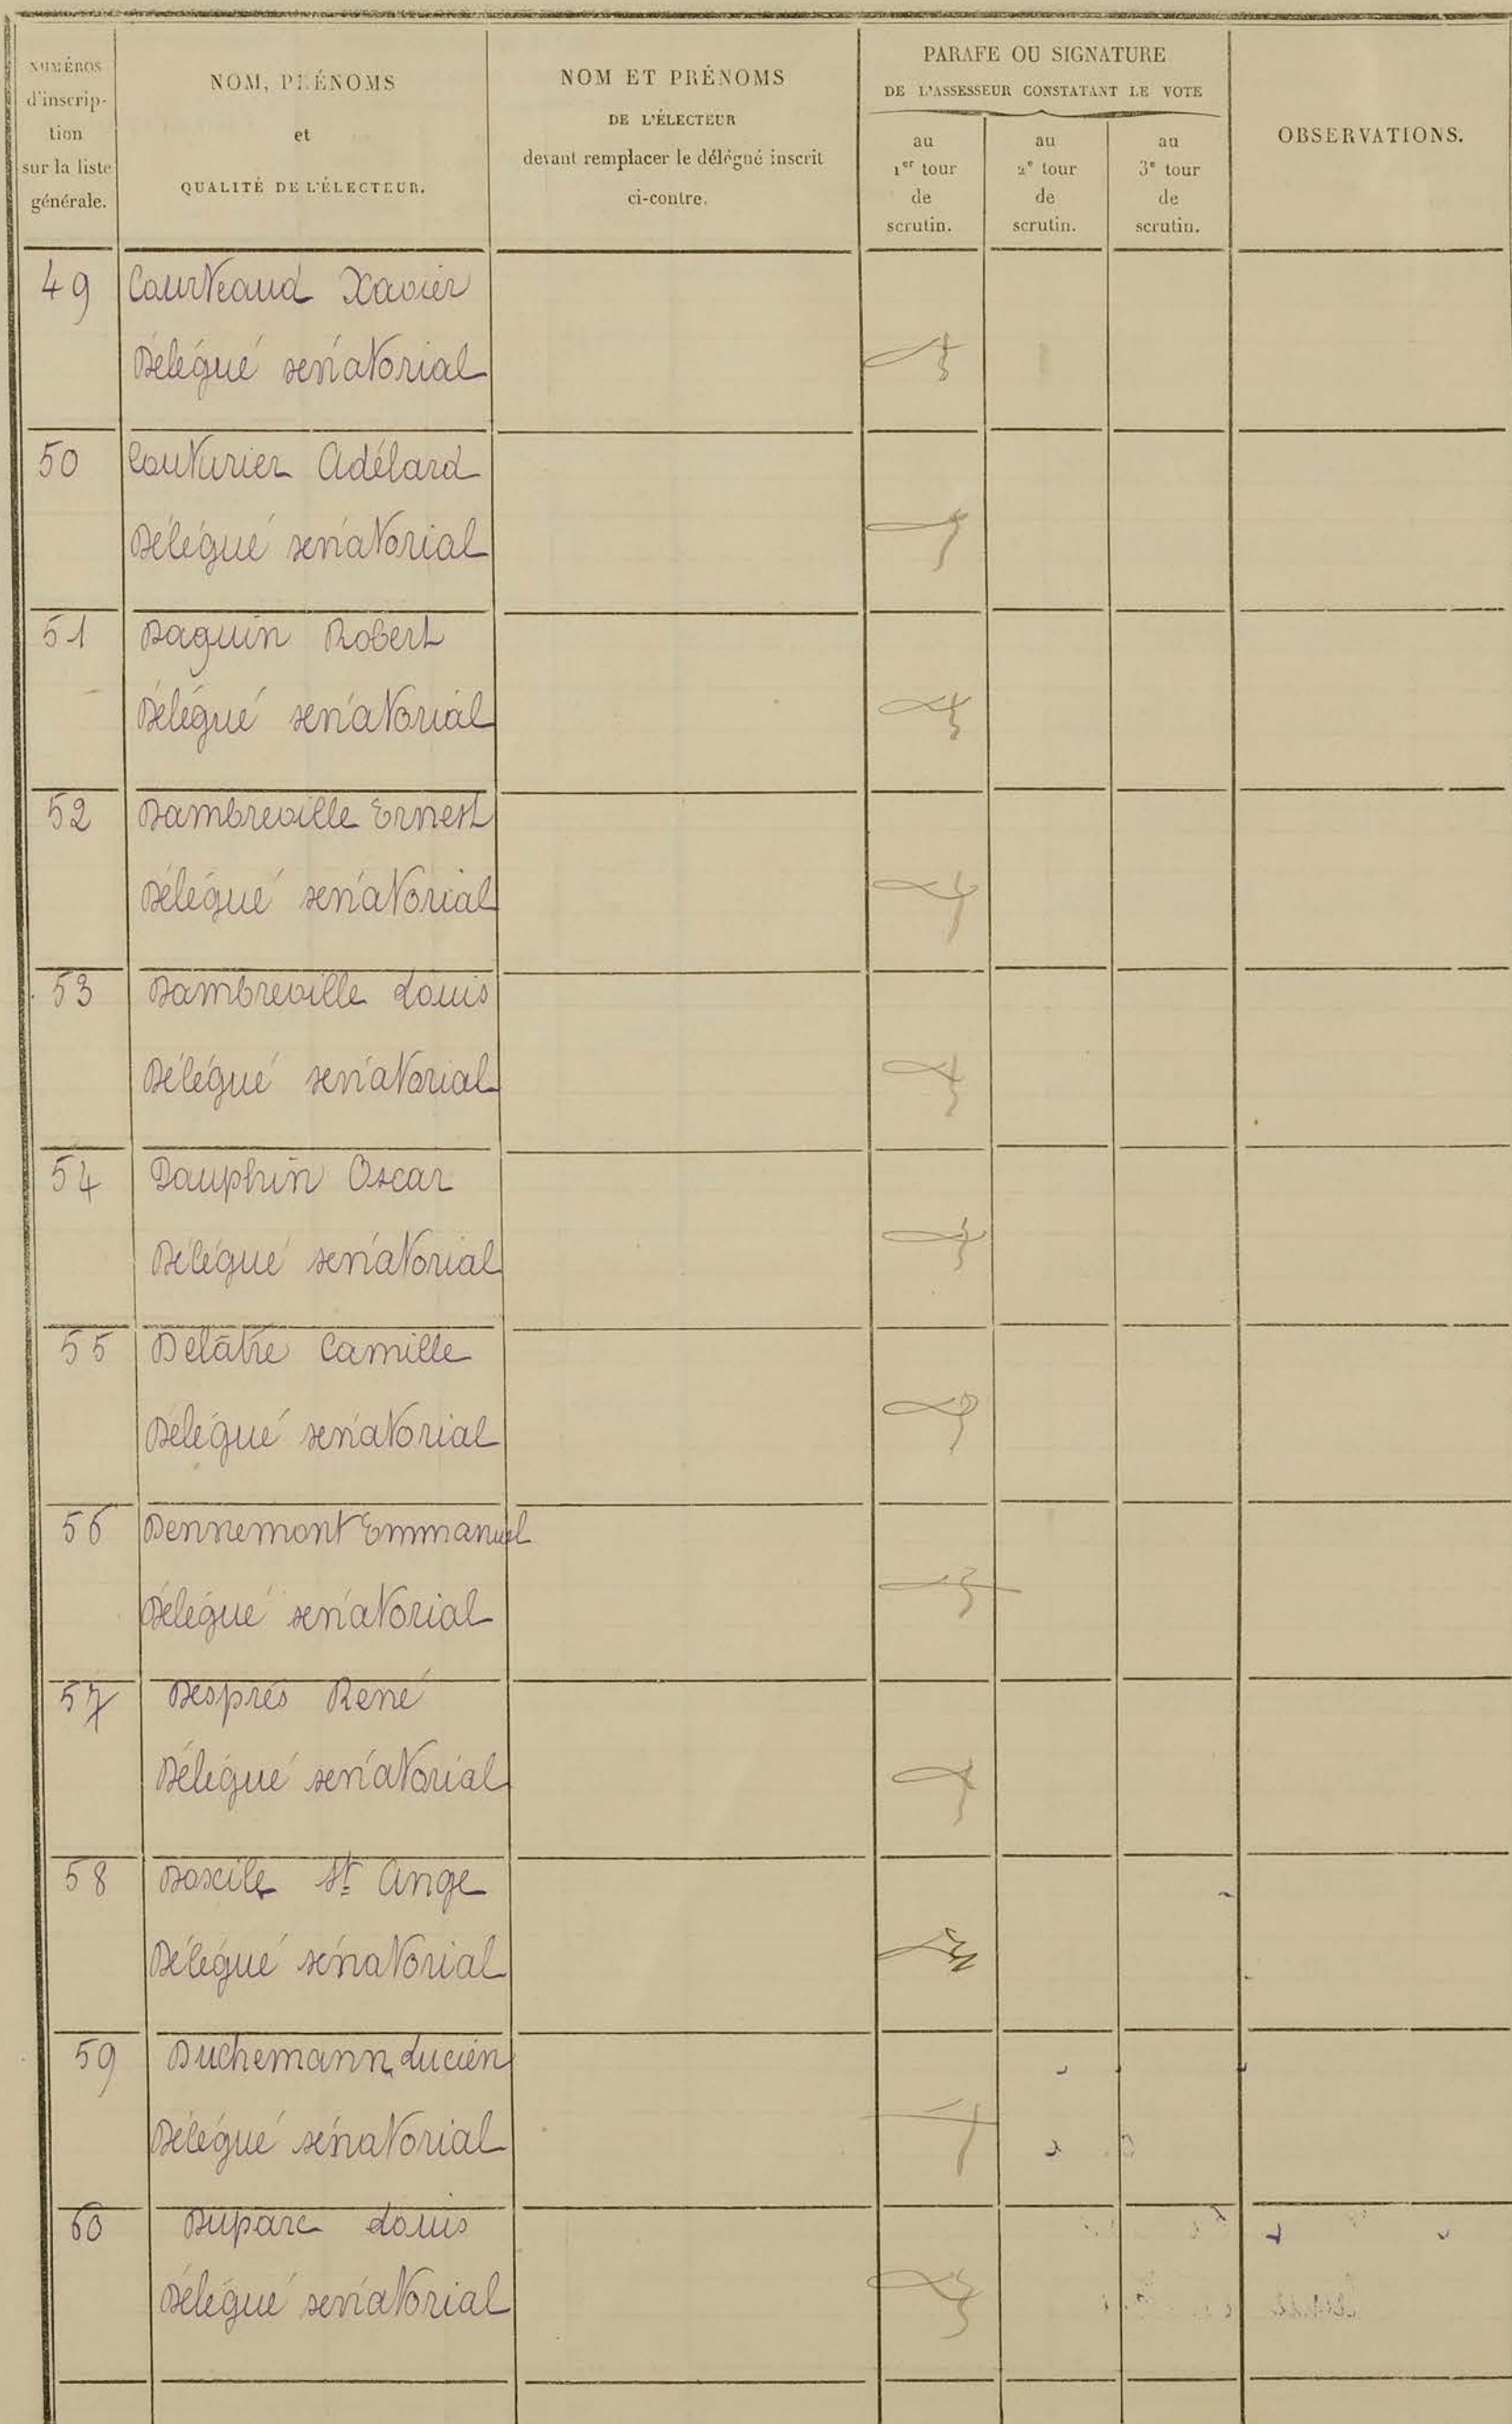 NUMÉROS
d'inscrip-
tion
sur la liste
générale.
NOM, PRÉNOMS
et
QUALITÉ DE L'ÉLECTEUR.
NOM ET PRÉNOMS
DE L'ÉLECTEUR
devant remplacer le délégué inscrit
ci-contre.
PARAFE OU SIGNATURE
DE L'ASSESSEUR CONSTATANT LE VOTE
au
1er tour
de
scrutin.
au
2e tour
de
scrutin.
au
3e tour
de
scrutin.
OBSERVATIONS.
49 Courteaud Xavier
Délégué sénatorial
50 Couturier Adélard
Délégué sénatorial
51 Daguin Robert
Délégué sénatorial
52 Dambreville Ernest
Délégué sénatorial
53 Dambreville Louis
Délégué sénatorial
54 Dauphin Oscar
Délégué sénatorial
55 Delâtre Camille
Délégué sénatorial
56 Dennemont Emmanuel
Délégué sénatorial
57 Després René
Délégué sénatorial
58 Doxile St Ange
Délégué sénatorial
59 Duchemann Lucien
Délégué sénatorial
60 Duparc Louis
Délégué sénatorial